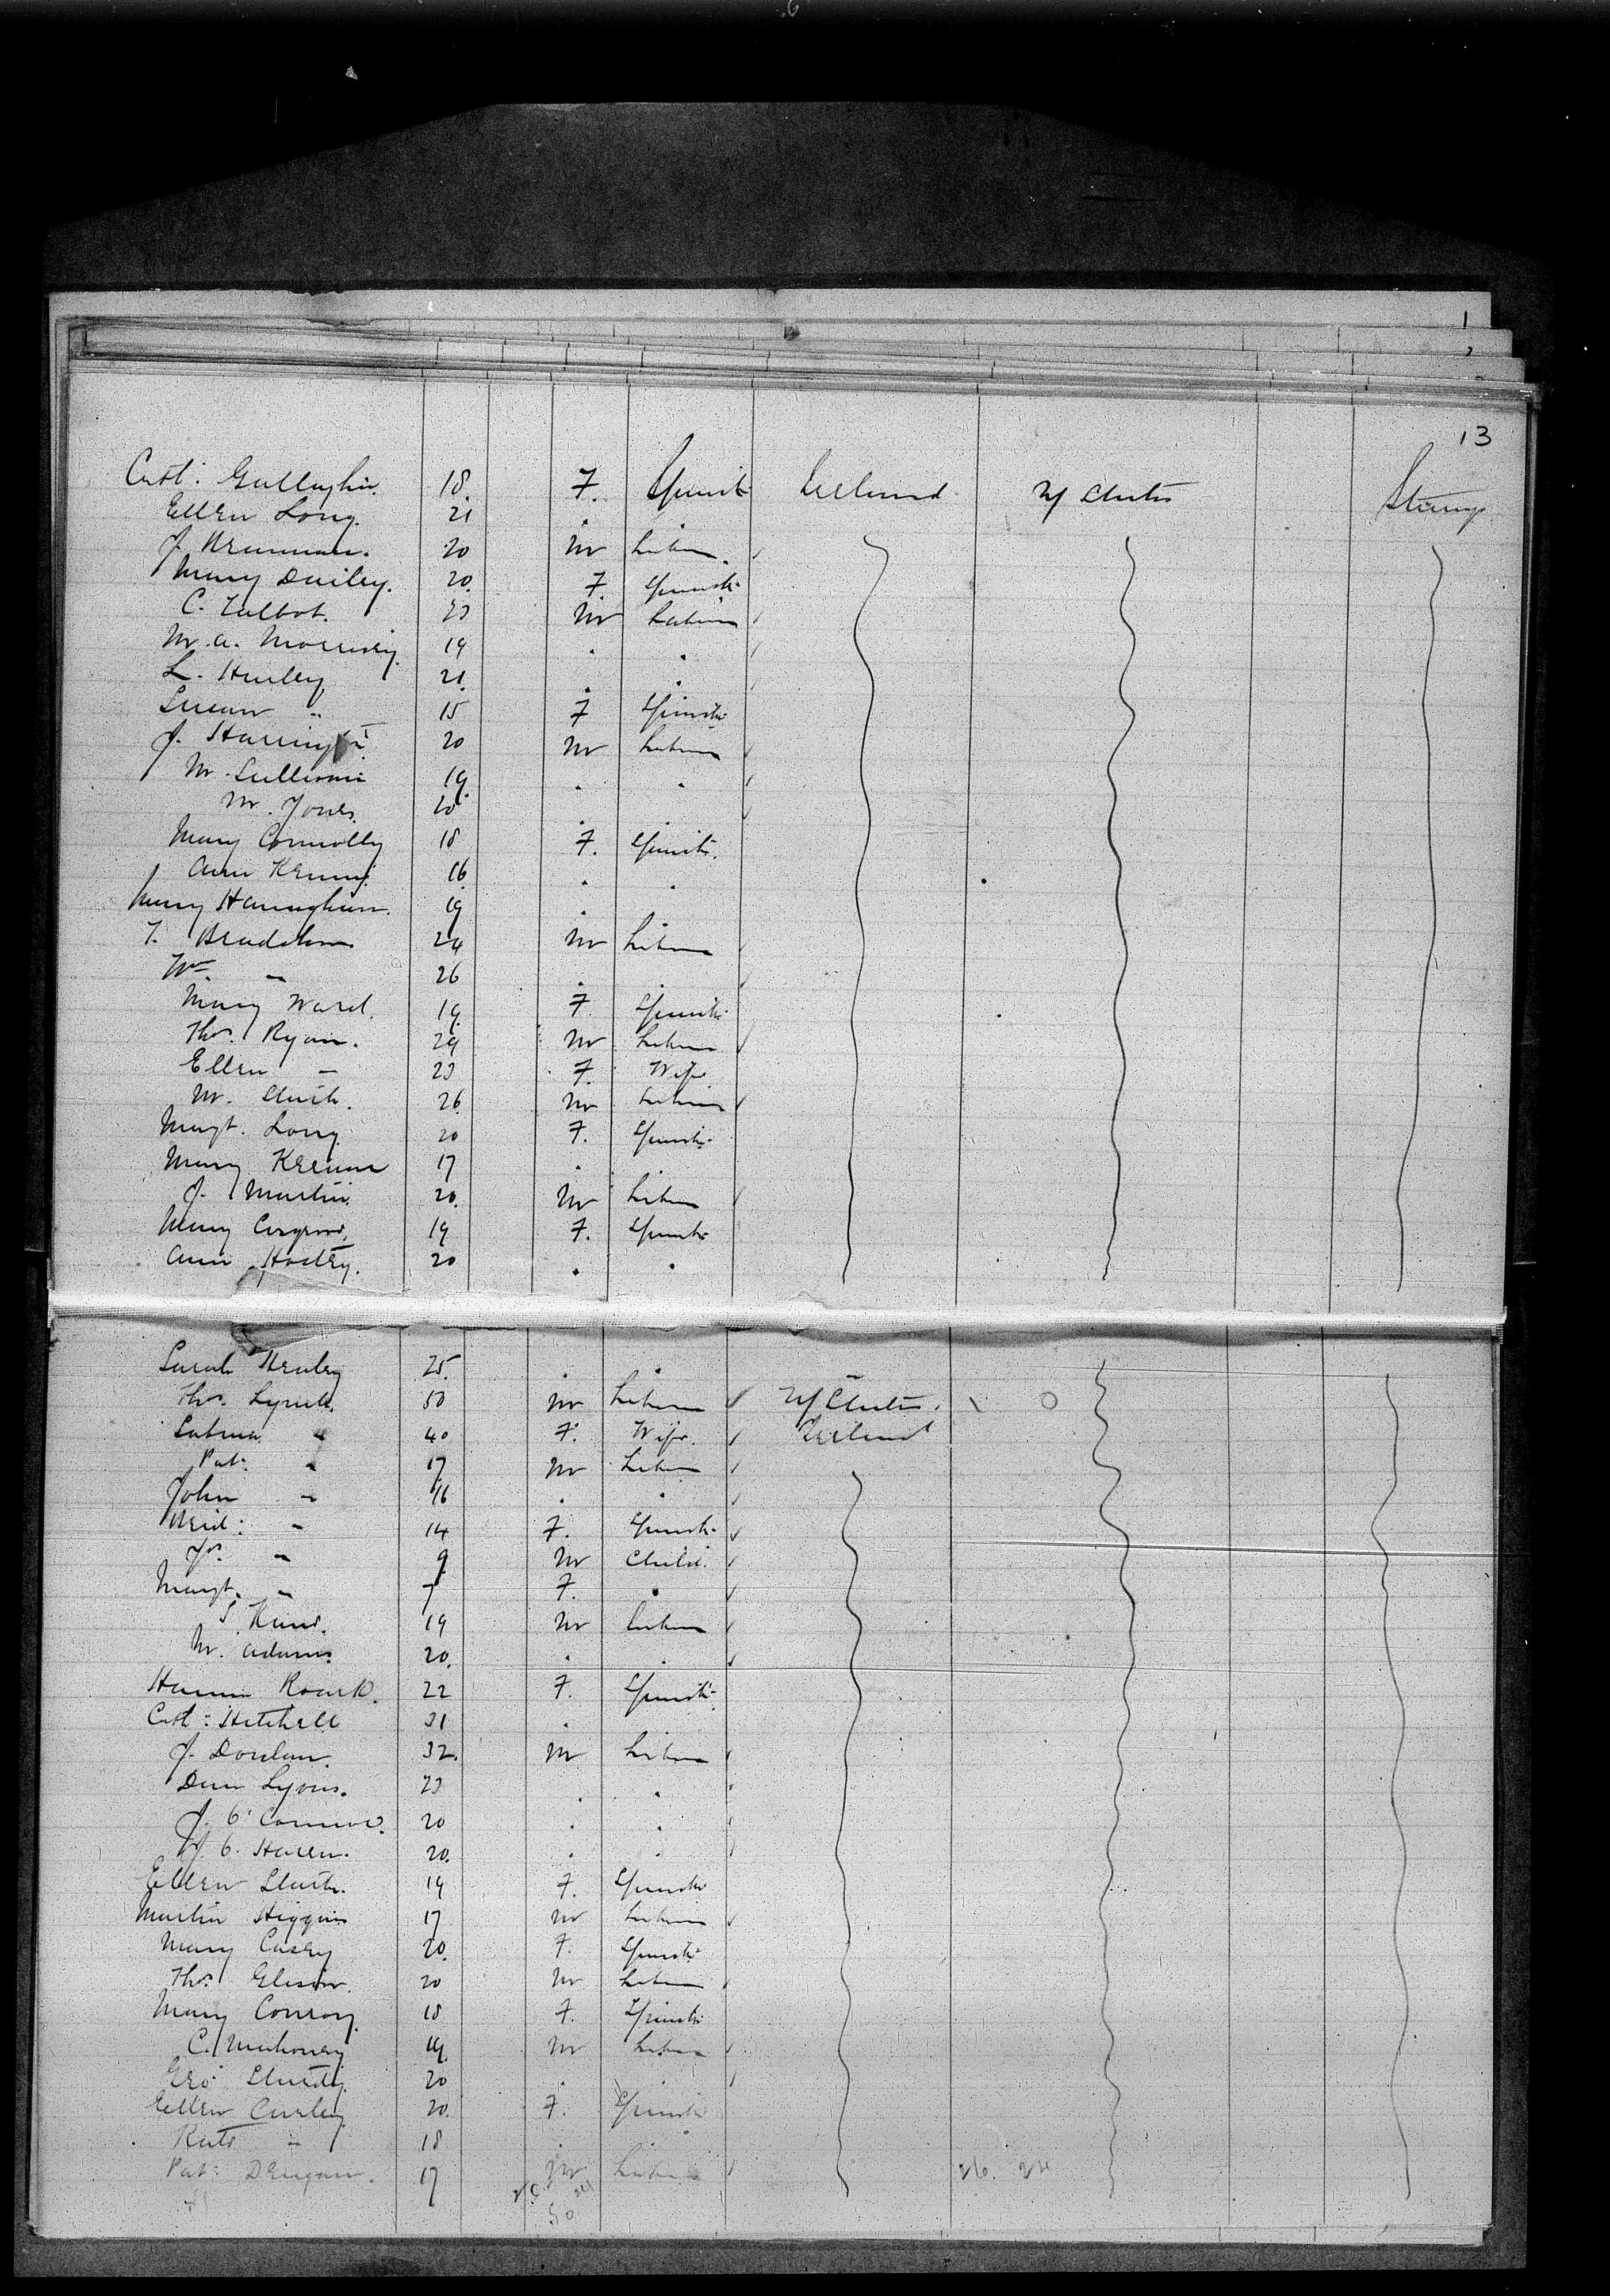 6
1
2
13
Cath: Gallagher. 18. F. Spinstr Ireland. U/ States Steerage
Ellen Long. 21 . .
J. Brennan. 20 M Labourer
Mary Dailey. 20. F. Spinstr
C. Talbot. 23 M Labourer
M. A. Morrissey. 19 . .
L. Hurley 21. . .
Susan " 15 F Spinstr
J. Harrington 20 M Labourer
M. Sullivan 19. . .
M. Jones. 20 . .
Mary Connolly 18 F. Spinstr.
Ann Kenny. 16 . .
Mary Hanaghan. 19 .
T. Bradshaw 24 M Labourer
Wm " 26 . .
Mary Ward. 19. F. Spinstr
Thos. Ryan. 29 M Labourer
Ellen " 23 F. Wife
M. Smith. 26. M Labourer
Margt. Long. 20 F. Spinstr
Mary Keenan 17 .
J. Martin. 20. M Labourer
Mary Cosgrove. 19 F. Spinstr
Ann Hostey. 20 . .
Sarah Henley 25. . .
Thos. Lynch. 50 M Labourer U/ States.
Sabina " 40 F. Wife. Ireland
Pat: " 17 M Labourer
John " 16 . .
Brid: " 14 F. Spinstr
" 9 M Child.
Margt. " 7 F. .
19 M Labourer
M. Adams. 20. . .
Hannah Roark. 22 F. Spinstr
Cath: 31 .
J. 32. M Labourer
Dan Lyons. 23 . .
J. O'Connor. 20 . .
20. . .
Ellen Smith. 19 F. Spinstr
Martin Higgins 17 M Labourer
Mary Casey 20. F. Spinstr
Thos. Gleeson. 20 M Labourer
Mary Conroy. 18 F. Spinstr
C. Mahoney 19. M Labourer
Geo. 20 . .
Ellen Curley 20. F. Spinstr
Kate " 18 . .
Pat: 17 M Labourer 26. 24
26 24
50